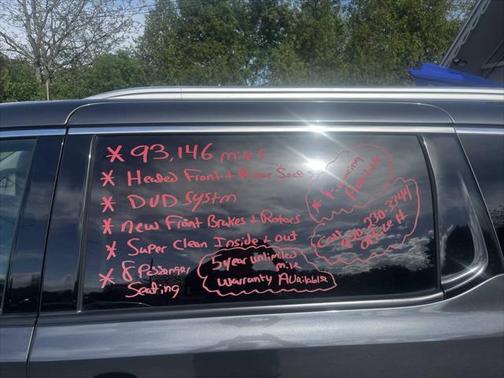 * 93,146 miles
* Heated Front & Rear Seats
* DVD Systm
* new Front Brakes & Rotors
* Super Clean Inside & out
* 8 Passenger
Seating
5 year unlimited
mile
Warranty Available
* Financing
Available
Call
OFFICE #